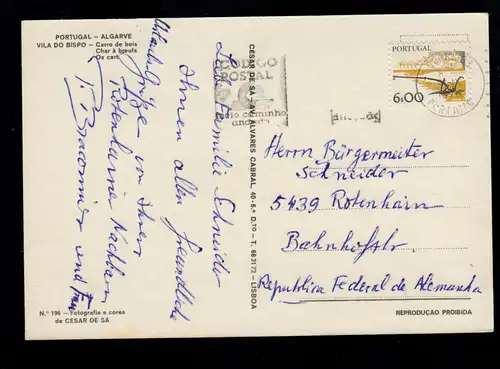 PORTUGAL - ALGARVE
VILA DO BISPO - Carro de bois
Char à bœufs
Ox cart
Liebe Familie Schneider
Ihnen allen freundliche
Urlaubsgrüße von Ihren
Rotenhainer Nachbarn
und Frau
Nº 196 - Fotografia a cores
de CESAR DE SÁ
CESAR DE SÁ, AV. ALVARES CABRAL, 40-5.º D.TO - T. 683172 - LISBOA
CÓDIGO
POSTAL
meio caminho
andado
PORTUGAL
6.00
Herrn Bürgermeister
Schneider
5439 Rotenhain
Bahnhofstr.
Republica Federal de Alemanha
REPRODUÇÃO PROIBIDA